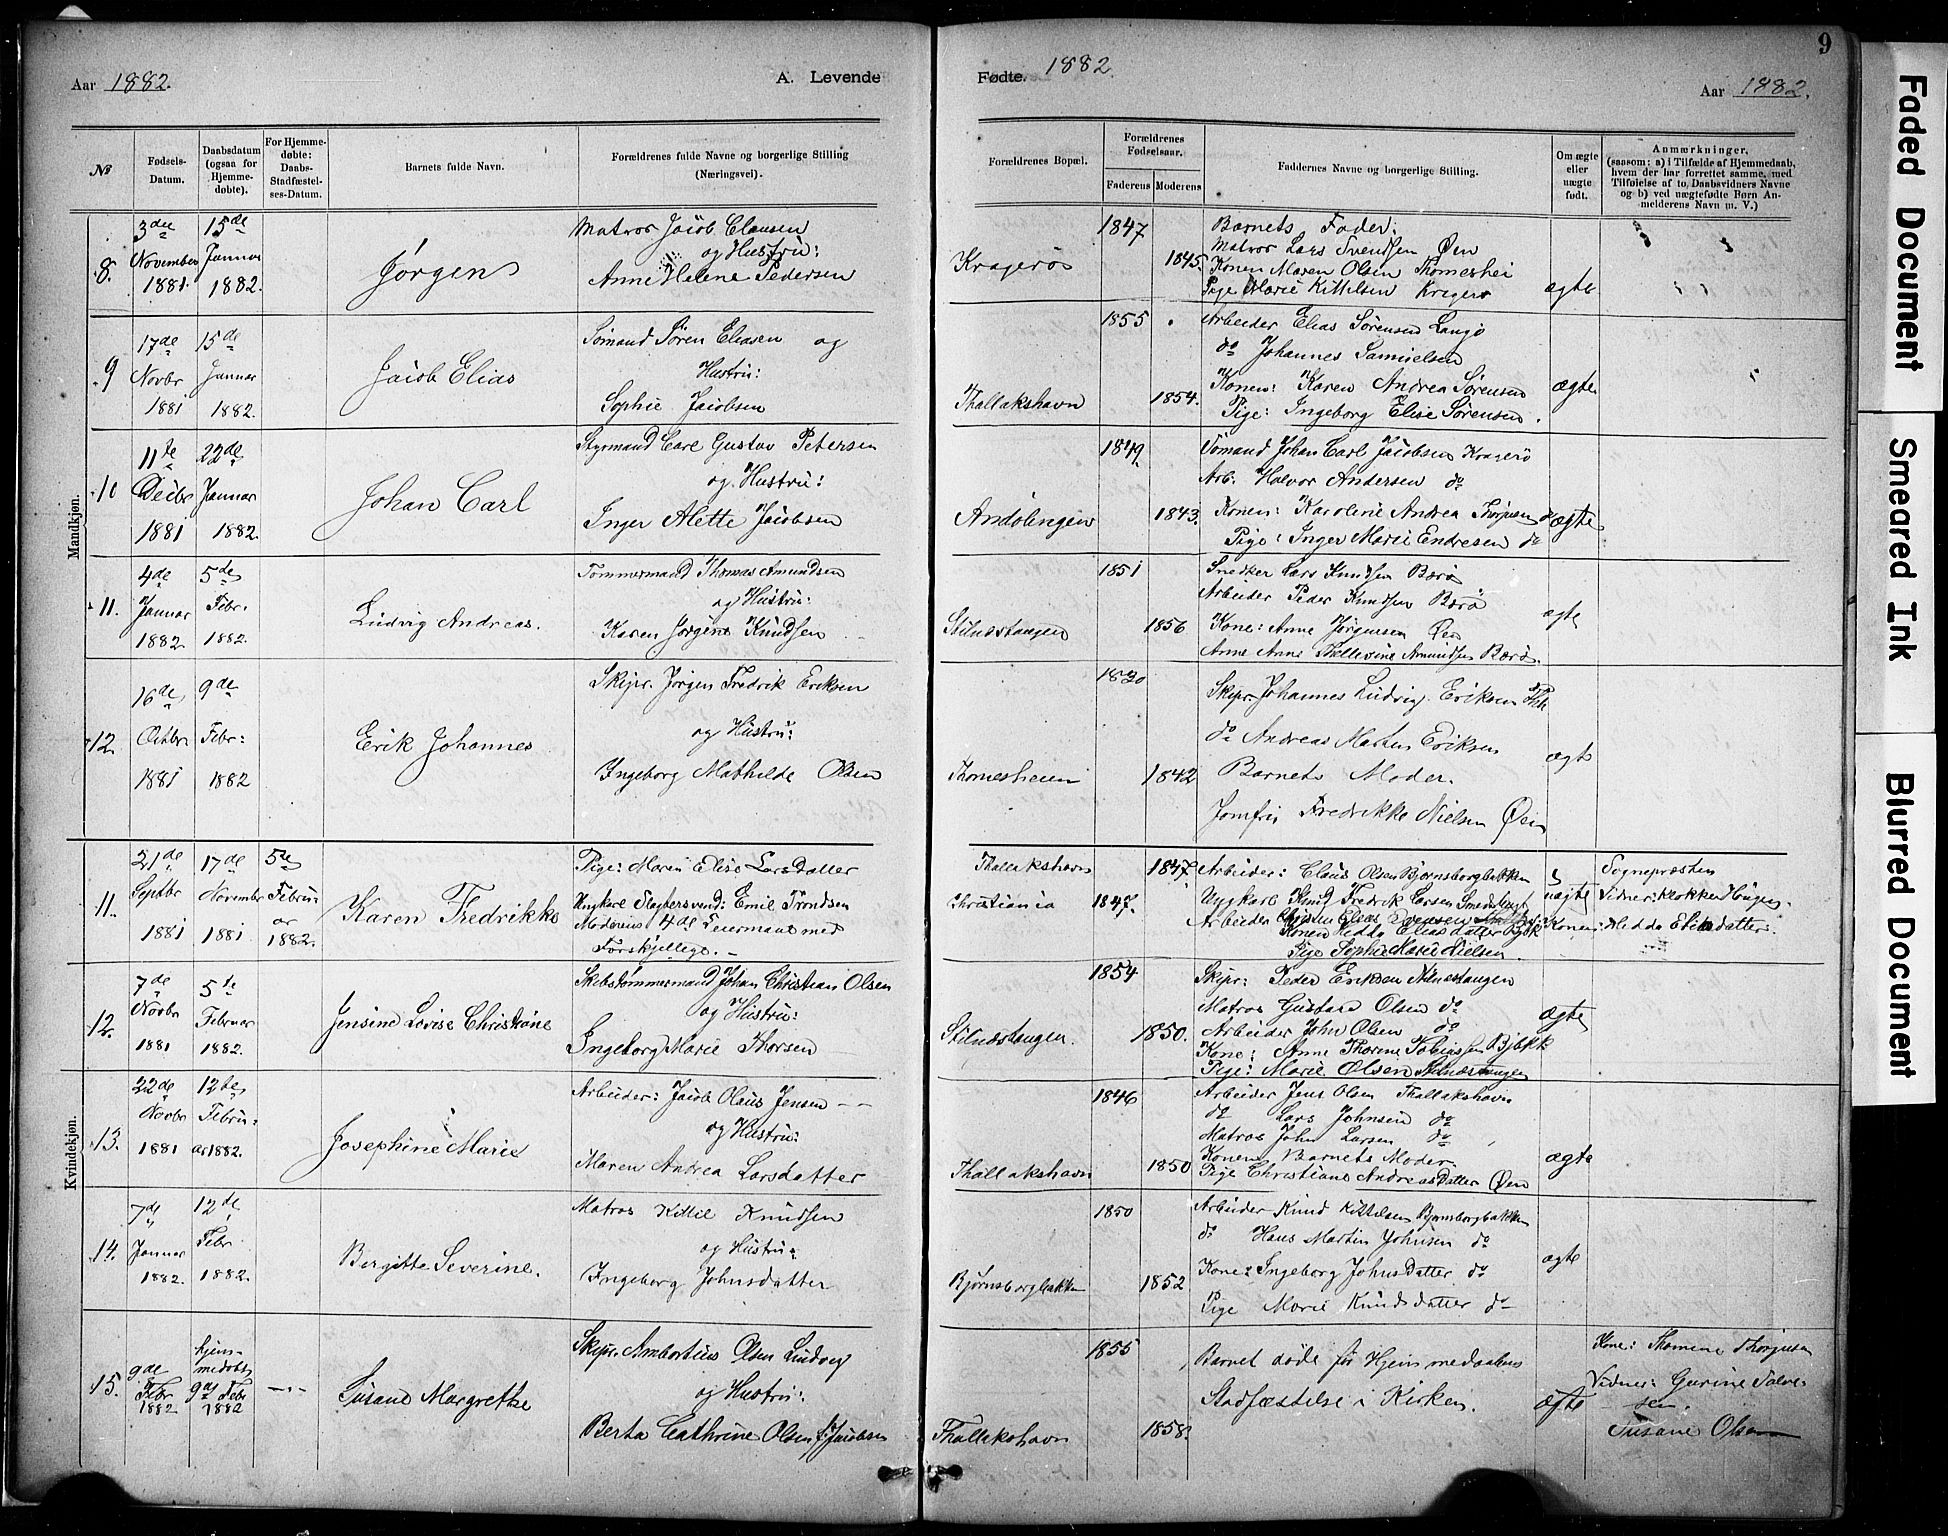 9
Aar 1882.
A. Levende
Fødte. 1882.
Aar 1882.
№
Fødsels-Datum.
Daabsdatum (ogsaa for Hjemme-døbte).
For Hjemme-døbte: Daabs-Stadfæstel-ses-Datum.
Barnets fulde Navn.
Forældrenes fulde Navne og borgerlige Stilling (Næringsvei).
Forældrenes Bopæl.
Forældrenes Fødselsaar.
Faderens
Moderens
Faddernes Navne og borgerlige Stilling.
Om ægte eller uægte født.
Anmærkninger.
(saasom: a) i Tilfælde af Hjemmedaab,
hvem der har forrettet samme, med
Tilføielse af to Daabsvidners Navne
og b) ved uægtefødte Børn An-
melderens Navn m. V.)
Mandkjøn.
8.
3die November 1881.
15de Januar 1882.
Jørgen
Matros Jacob Clausen
og Hustru:
Anne Helene Pedersen
Kragerøe
1847
1845.
Barnets Fader.
Matros Lars Svendsen Øen
Konen Maren Olsen Thomeshei
Pige Marie Kittilsen Kragerø
ægte
9
17de Novbr 1881
15de Januar 1882.
Jacob Elias
Sømand Sören Eliasen og
Hustru:
Sophie Jacobsen
Thallakshavn
1855
1854.
Arbeider Elias Sörensen Langö
do Johannes Samuelsen
Konen: Karen Andrea Sörensen
Pige: Ingeborg Elise Sörensen.
ægte
10
11te Decbr 1881
22de Januar 1882.
Johan Carl
Styrmand Carl Gustav Petersen
og Hustru:
Inger Alette Jacobsen
1849.
1843.
Sömand Johan Carl Jacobsen Kragerö
Arb. Halvor Andersen do
Konen: Karoline Andrea Thorjusen do
Pige: Inger Marie Endresen do
ægte
11.
4de Januar 1882
5de Febr. 1882.
Ludvig Andreas.
Tømmermand Thomas Amundsen
og Hustru:
Karen Jorgine Knudsen
Stilnestangen
1851
1856
Snedker Lars Knudsen Barö
Arbeider Peder Knudsen Barö
Kone: Anne Jörgensen Øen
Anne Thellesine Amundsen Barö.
ægte
12.
16de Octbr 1881
9de Febr: 1882
Erik Johannes
Skipr. Jörgen Fredrik Eriksen
og Hustru:
Ingeborg Mathilde Olsen
Thomesheien
1842
Skipr. Johannes Ludvig Eriksen
do Andreas Martin Eriksen
Barnets Moder.
Jomfru Fredrikke Nielsen Øen
ægte
Kvindekjøn.
11.
21de Septbr 1881
17de November 1881
5te Februar 1882.
Karen Fredrikke
Pige: Maren Elise Larsdatter
Ungkarl Slagtersvend: Emil Trondsen
Moderens 4de Leiermaal med
Forskjellige.
Thallakshavn
Christiania
1847.
1847.
Arbeider: Claus Olsen Bjørnsborgbakken
Ungkarl Knud Fredrik Larsen
Arbeider Elias Svensen
Konen Hedda Eliasdatter
Pige Sophie Marie Nielsen.
uægte
Sognepræsten
Vidner: Klokker
Konen: Hedda Eliasdatter.
12.
7de Novbr 1881
5te Februar 1882.
Jensine Lovise Christine
Skibstømmermand Johan Christian Olsen
og Hustru:
Ingeborg Marie Thorsen
Stilnestangen.
1854
1850.
Skipr: Peder Eriksen Stilnestangen
Matros Gustav Olsen do
Arbeider John Olsen do
Kone: Anne Thorine Tobiassen
Pige: Marie Olsen Stilnestangen
ægte
13.
22de Novbr 1881
12te Februar 1882.
Josephine Marie
Arbeider: Jacob Olaus Jensen
og Hustru:
Maren Andrea Larsdatter
Thallakshavn
1846
1850
Arbeider Jens Olsen Thallakshavn
do Lars Johnsen do
Matros John Larsen do
Konen Barnets Moder
Pige Christiane Andreasdatter Øen
ægte
14.
7de Januar 1882.
12te Febr 1882.
Bergitte Severine.
Matros Kittil Knudsen
og Hustru:
Ingeborg Johnsdatter
Bjørnsborgbakken
1850
1852
Arbeider Knud Kittilsen Bjørnsborgbakken
do Hans Martin Johnsen do
Kone: Ingeborg Johnsdatter do
Pige Marie Knudsdatter do
ægte
15.
9de Febr 1882
hjem-medøbt 9de Febr 1882
Susane Margrethe
Skipr. Ambortius Olsen Ludvig
og Hustru:
Berta Cathrine Olsen f. Jacobsen
Thallakshavn
1855
1858.
Barnet døde før Hjemmedaabens
Stadfæstelse i Kirken.
ægte
Kone: Thomine Thorjusen
Vidner: Gurine Salve-
sen.
Susane Olsen
Faded Document
Smeared Ink
Blurred Document